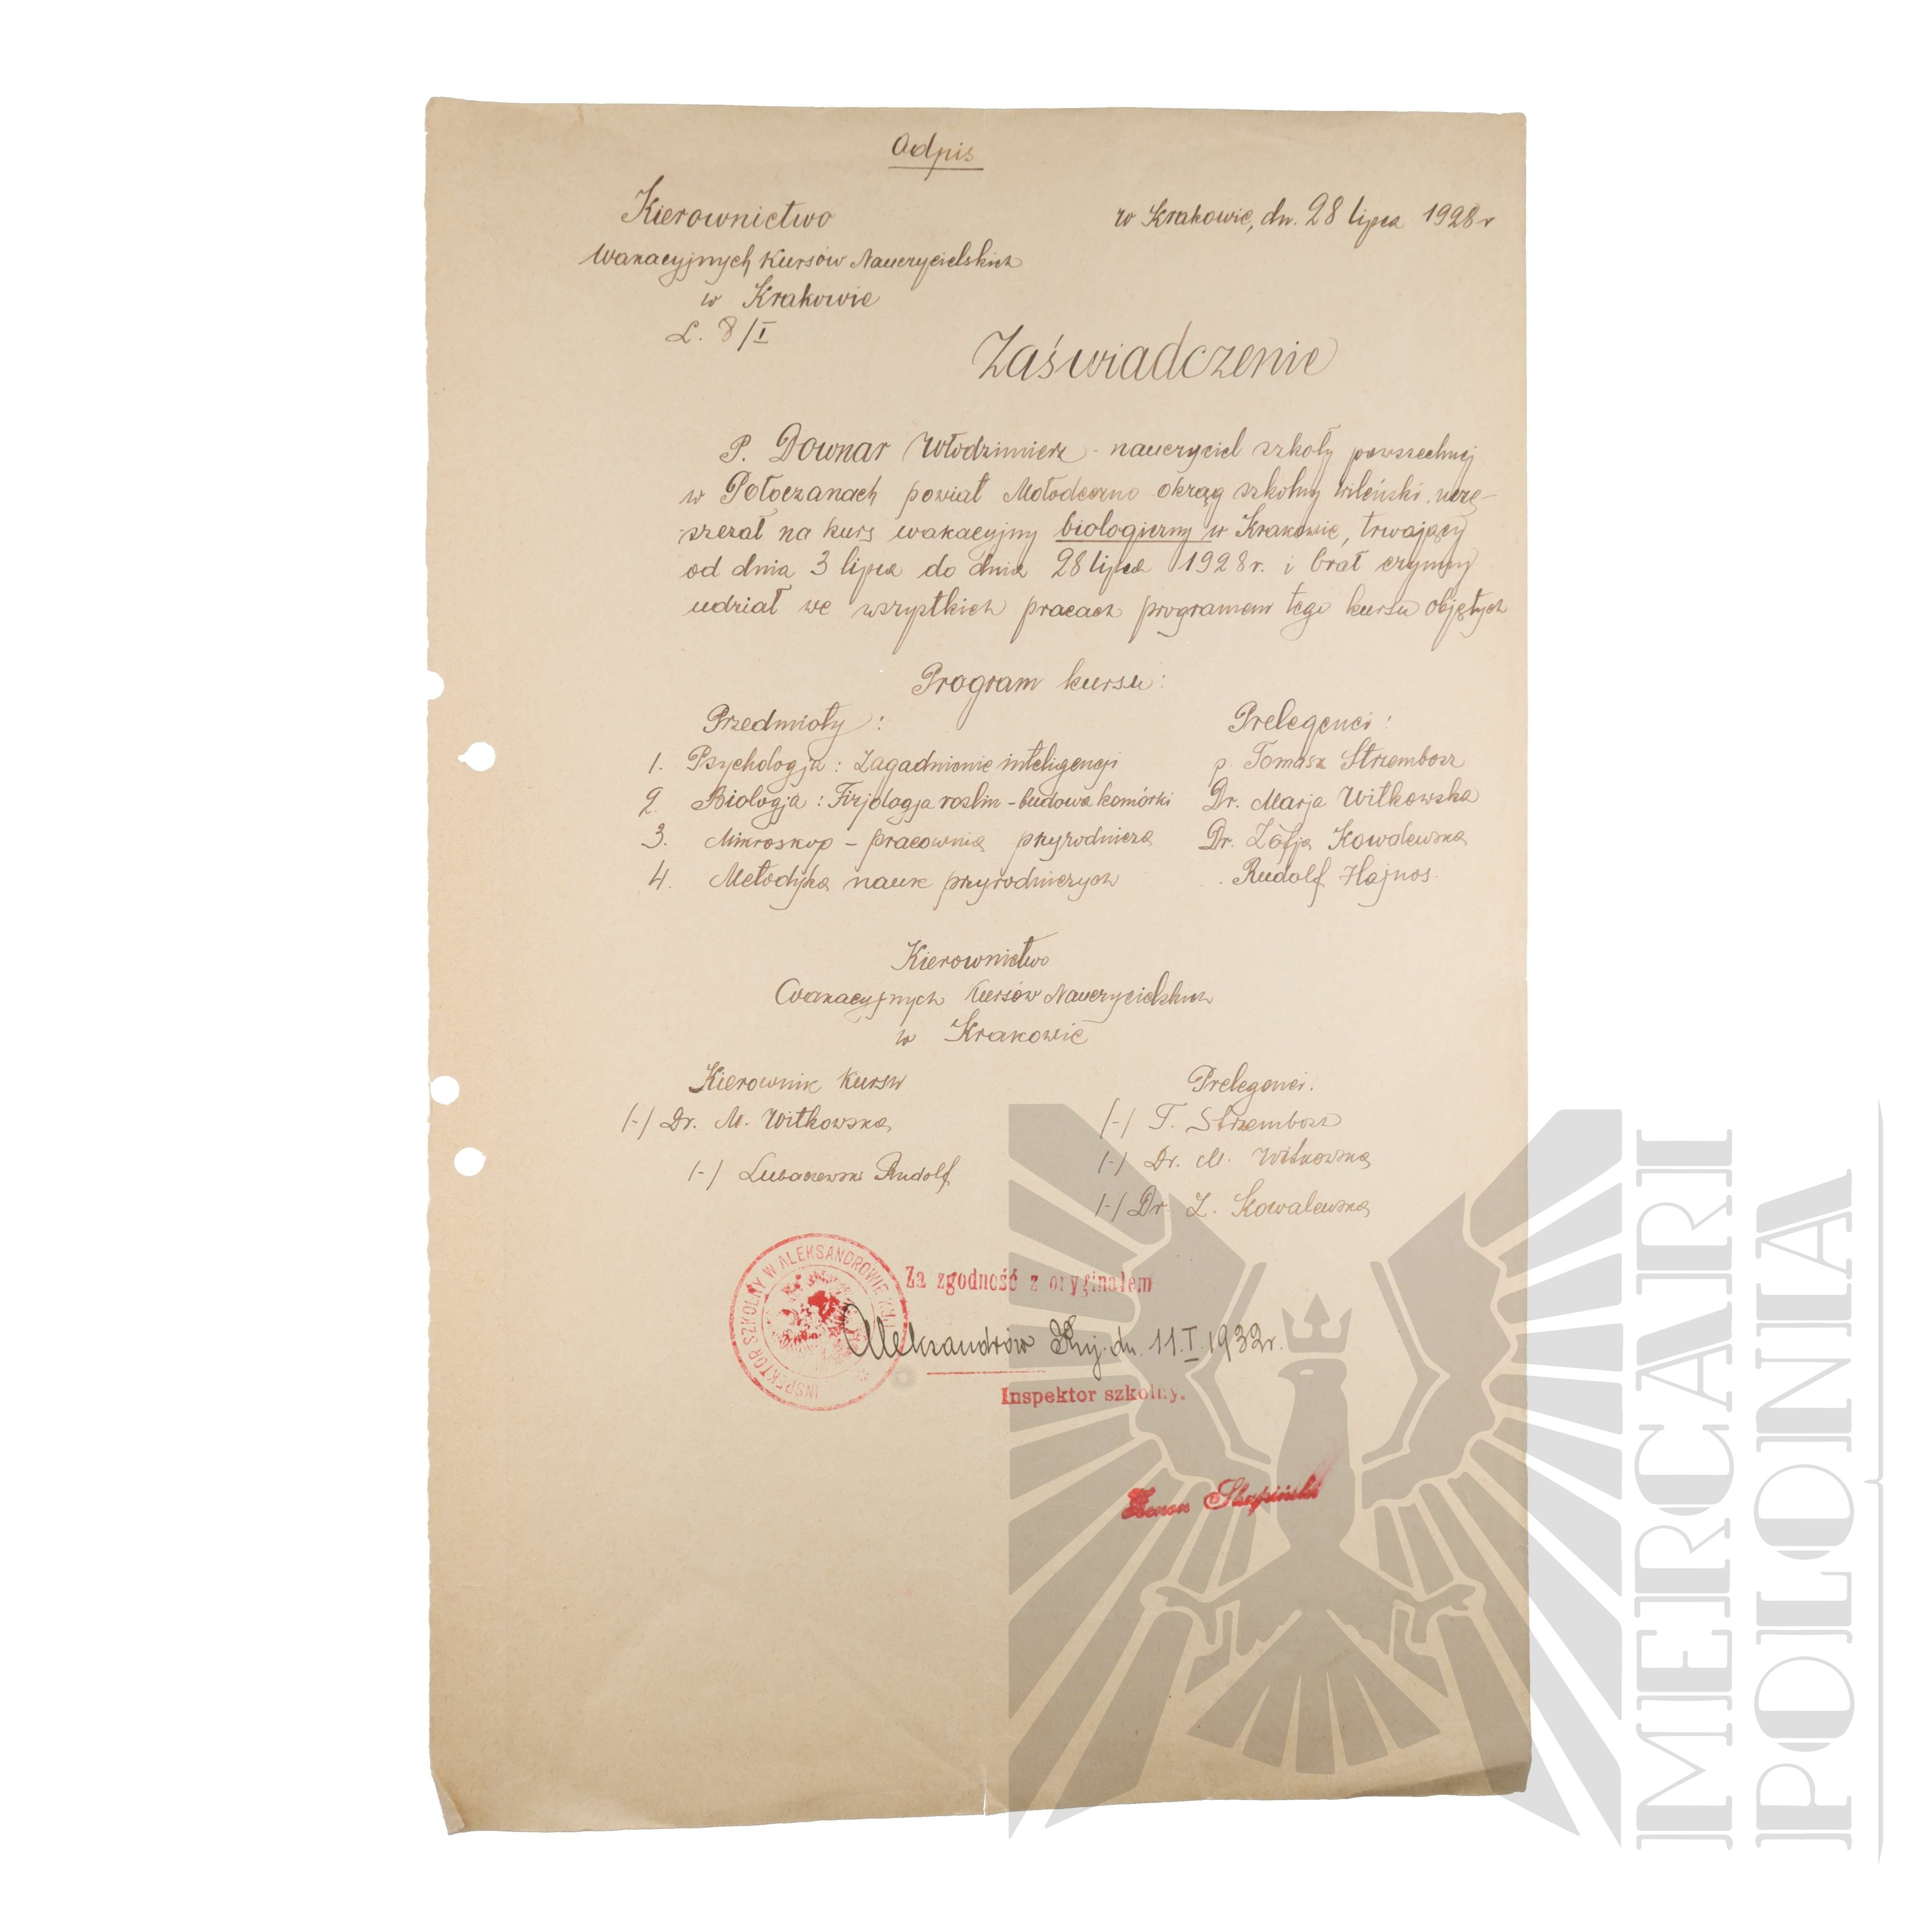 Odpis
Kierownictwo
w Krakowie, dn. 28 lipca 1928 r
Wakacyjnych Kursów Nauczycielskich
w Krakowie
L. 8/I
Zaświadczenie
P. Downar Włodzimierz - nauczyciel szkoły powszechnej
w Połoczanach powiat Mołodeczno okrąg szkolny wileński, uczę-
szczał na kurs wakacyjny biologiczny w Krakowie, trwający
od dnia 3 lipca do dnia 28 lipca 1928 r. i brał czynny
udział we wszystkich pracach programem tego kursu objętych
Program kursu:
Przedmioty: Prelegenci:
1. Psychologja: Zagadnienie inteligencji p. Tomasz Strzembosz
2. Biologja: Fizjologja roślin - budowa komórki Dr. Marja Witkowska
3. Mikroskop - pracownia przyrodnicza Dr. Zofja Kowalewska
4. Metodyka nauk przyrodniczych Rudolf Hajnos.
Kierownictwo
Wakacyjnych Kursów Nauczycielskich
w Krakowie
Kierownik Kursu Prelegenci:
/-/ Dr. M. Witkowska /-/ T. Strzembosz
/-/ Dr. M. Witkowska
/-/ Rudolf
/-/ Dr. Z. Kowalewska
INSPEKTOR SZKOLNY W ALEKSANDROWIE KUJ.
Za zgodność z oryginałem
Aleksandrów Kuj. dn. 11.I.1932 r.
Inspektor szkolny.
Zenon Skupiński
MERCARI
POLONIA